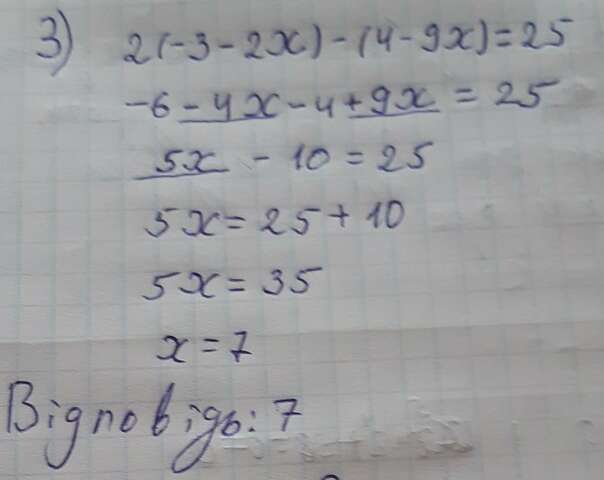 3) 2(-3-2x)-(4-9x)=25
-6-4x-4+9x=25
5x-10=25
5x=25+10
5x=35
x=7
Відповідь: 7